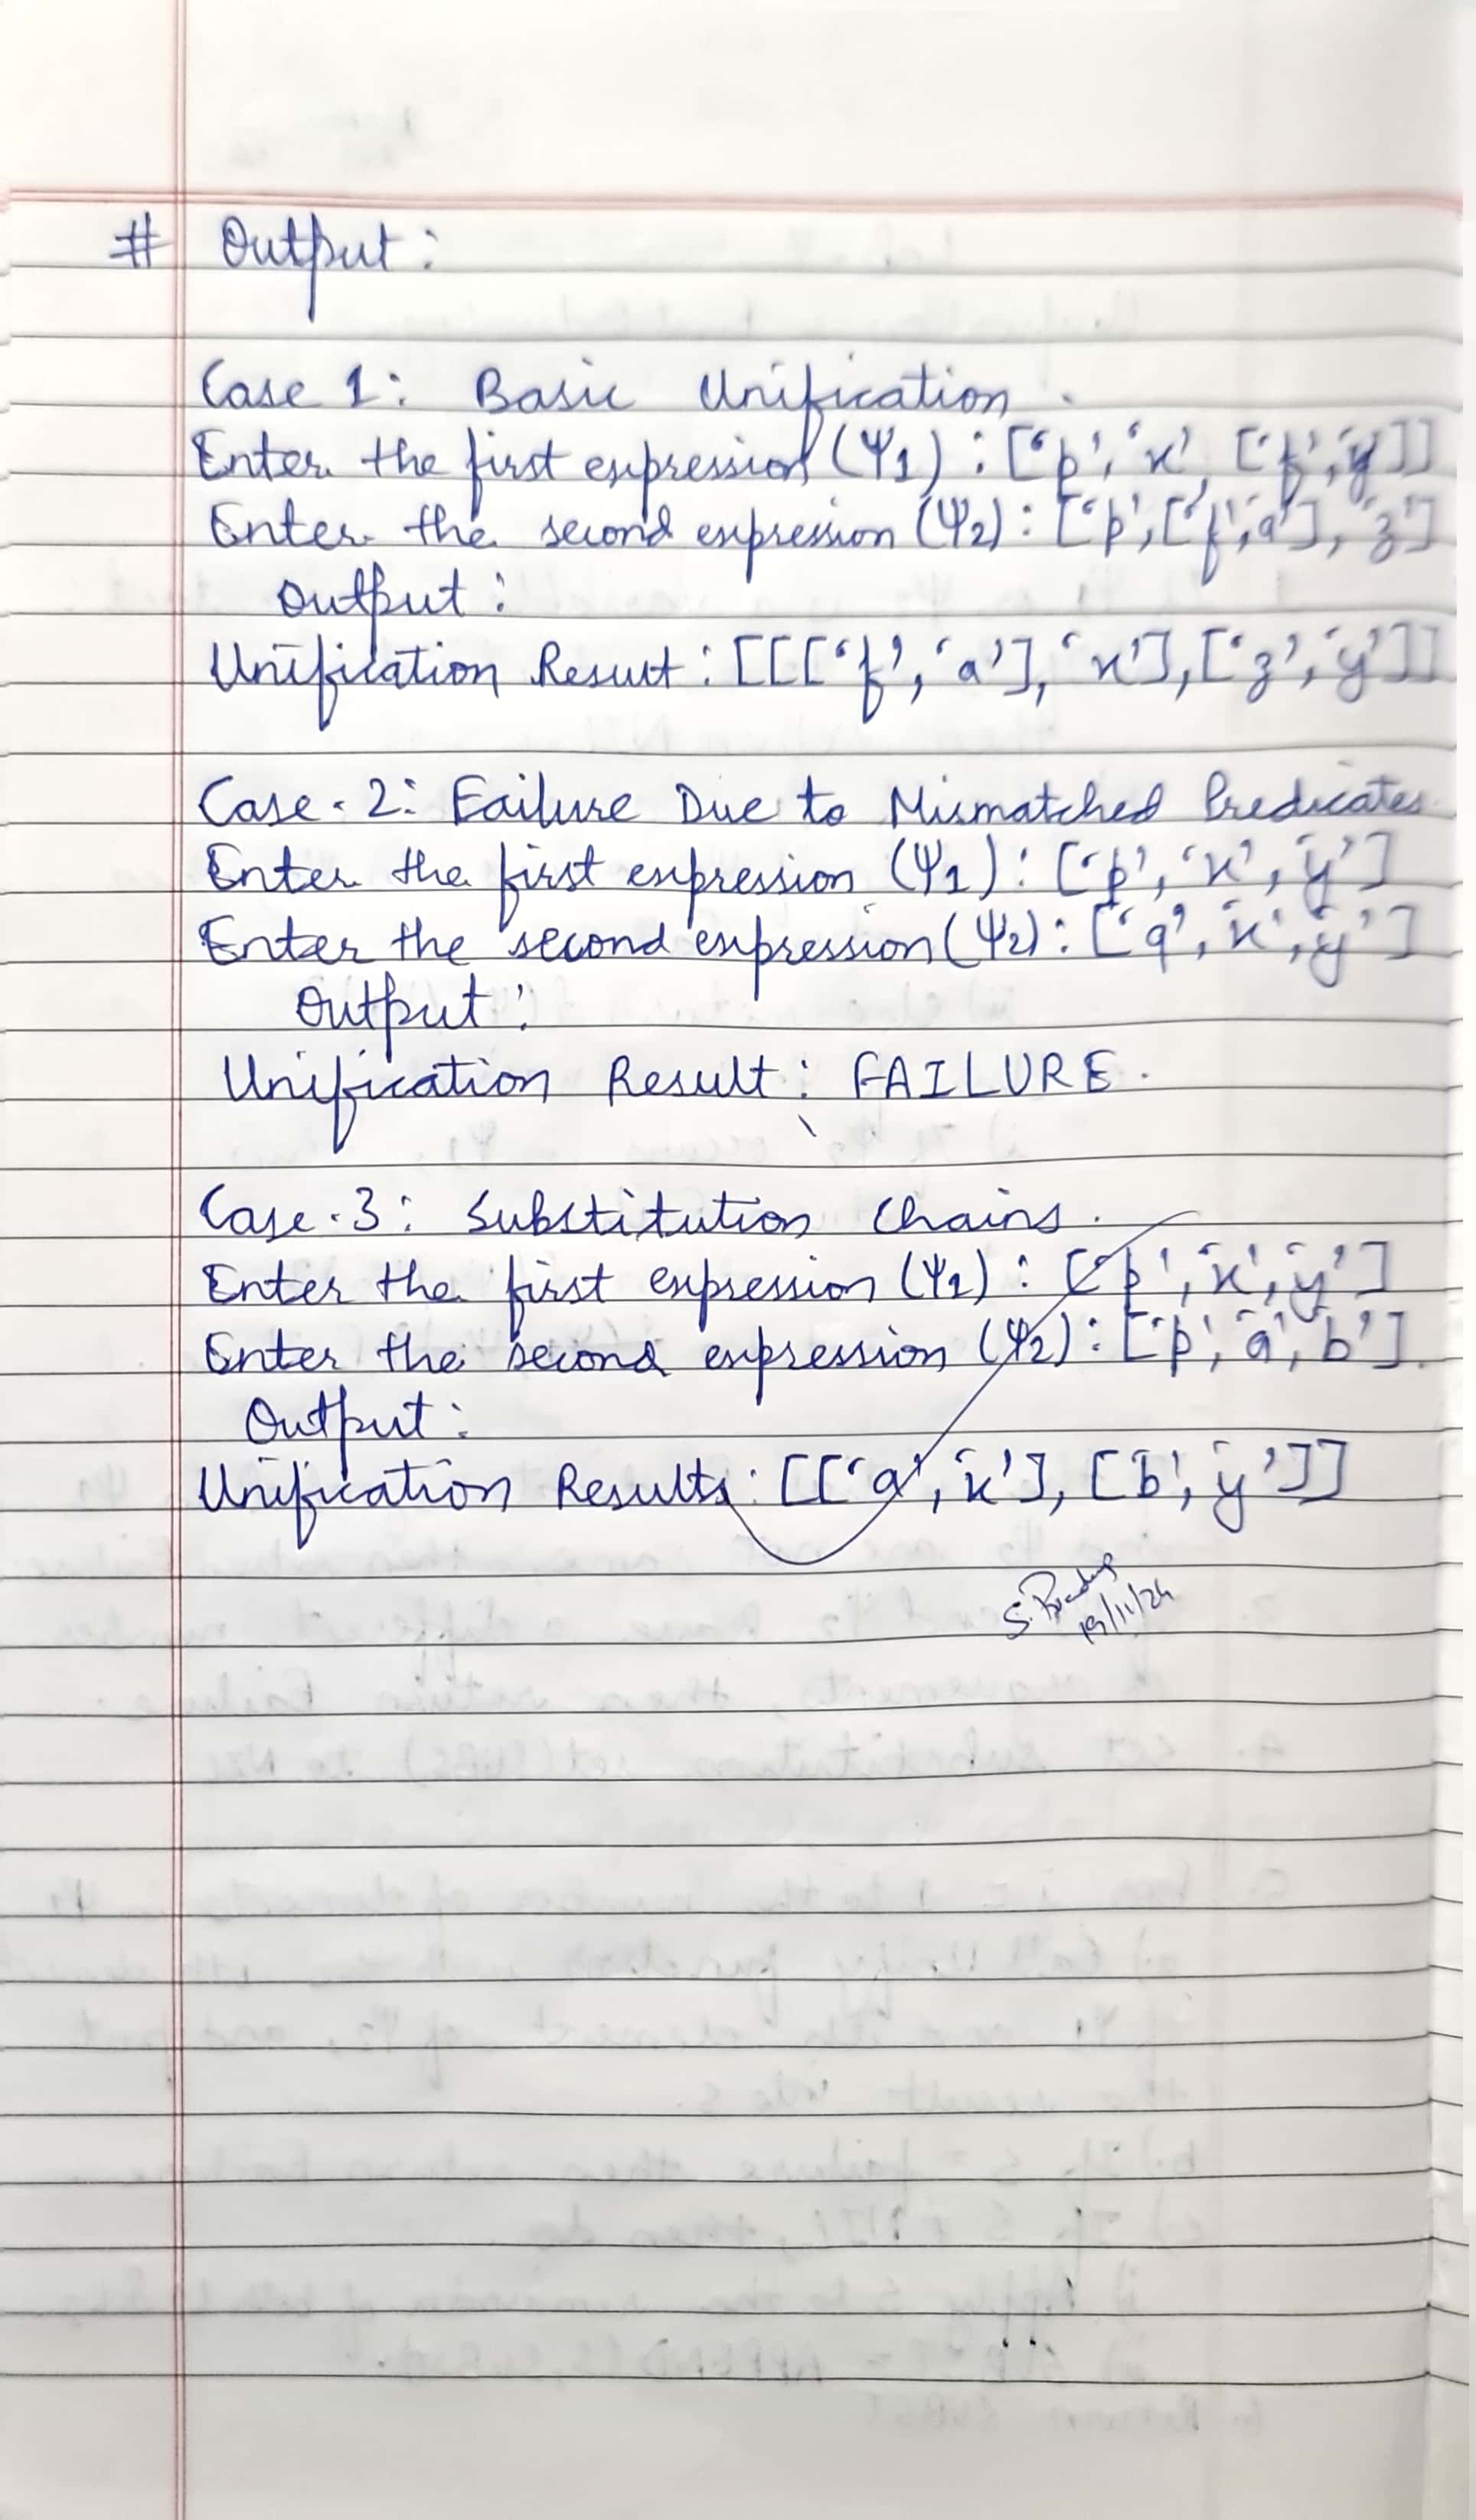 # Output :
Case 1 : Basic Unification .
Enter the first expression (Ψ1) : ['p', 'x', ['f', 'y']]
Enter the second expression (Ψ2) : ['p', ['f', 'a'], 'z']
Output :
Unification Result : [[['f', 'a'], 'x'], ['z', 'y']]
Case - 2 : Failure Due to Mismatched Predicates
Enter the first expression (Ψ1) : ['p', 'x', 'y']
Enter the second expression (Ψ2) : ['q', 'x', 'y']
Output :
Unification Result : FAILURE .
Case - 3 : Substitution Chains .
Enter the first expression (Ψ1) : ['p', 'x', 'y']
Enter the second expression (Ψ2) : ['p', 'a', 'b'] .
Output :
Unification Results : [['a', 'x'], ['b', 'y']]
19/11/24